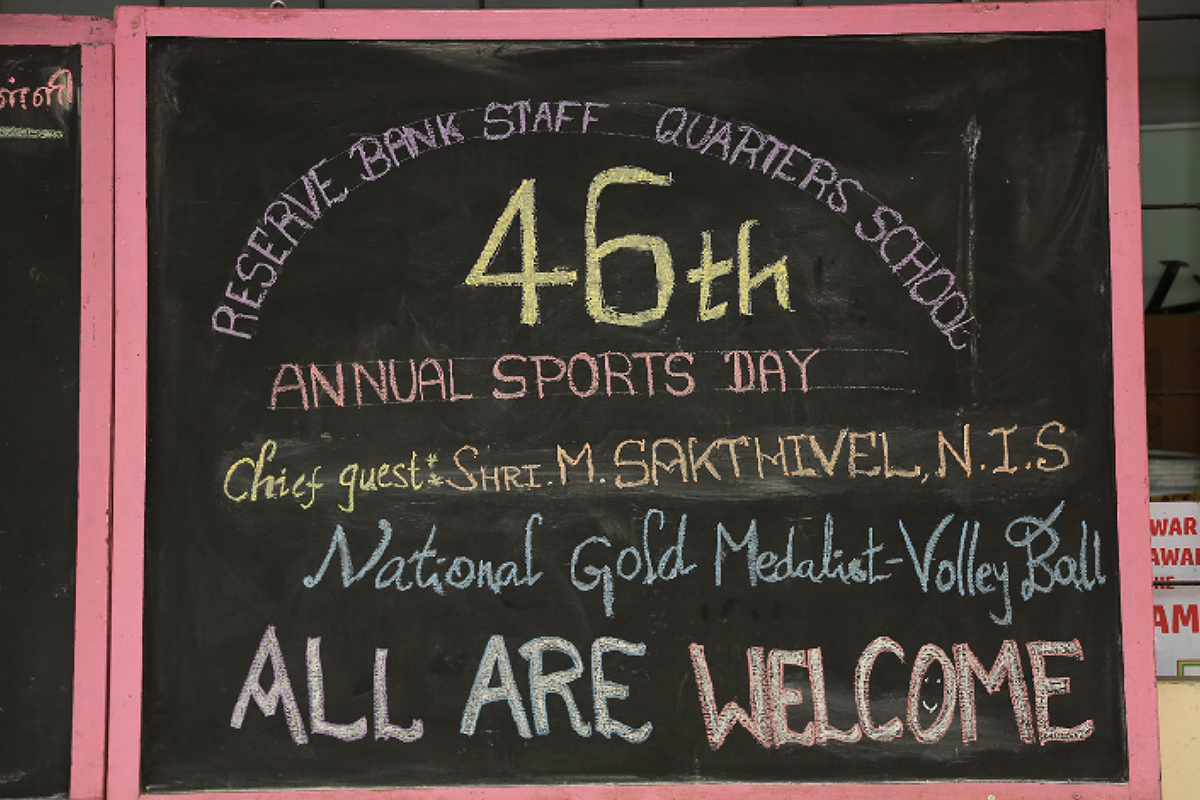 ள்ளி
RESERVE BANK STAFF QUARTERS SCHOOL
46th
ANNUAL SPORTS DAY
Chief guest: SHRI. M. SAKTHIVEL, N.I.S
National Gold Medalist-Volley Ball
ALL ARE WELCOME
WAR
AWAR
HE
AM